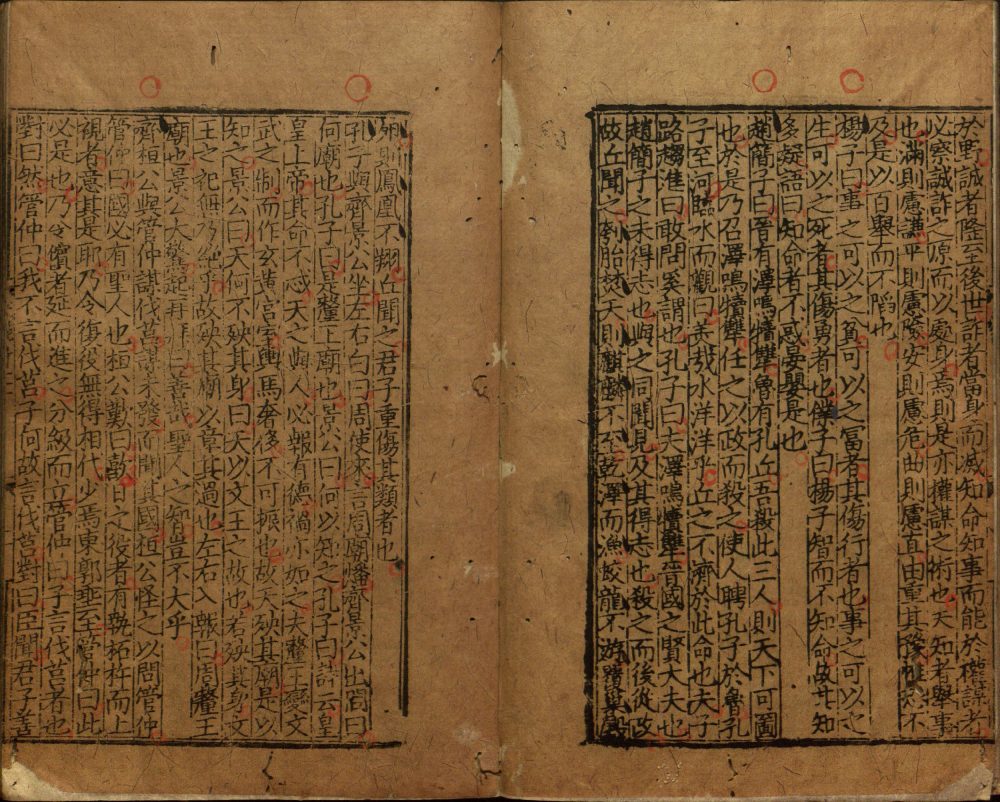 於野誠者隆至後世詐者當身而滅知命知事而能於權謀者
必察誠詐之原而以處身焉則是亦權謀之術也夫知者舉事
也滿則慮謙平則慮險安則慮危曲則慮直由重其豫惟恐不
及是以百舉而不陷也
楊子曰事之可以之貧可以之富者其傷行者也事之可以之
生可以之死者其傷勇者也僕子曰楊子智而不知命故其知
多疑語曰知命者不惑晏嬰是也
趙簡子曰晉有澤鳴犢犨魯有孔丘吾殺此三人則天下可圖
也於是乃召澤鳴犢犨任之以政而殺之使人聘孔子於魯孔
子至河臨水而觀曰美哉水洋洋乎丘之不濟於此命也夫子
路趨進曰敢問奚謂也孔子曰夫澤鳴犢犨晉國之賢大夫也
趙簡子之未得志也與之同聞見及其得志也殺之而後從政
故丘聞之刳胎焚夭則麒麟不至乾澤而漁蛟龍不游覆巢毀
卵則鳳凰不翔丘聞之君子重傷其類者也
孔子與齊景公坐左右白曰周使來言周廟燔齊景公出問曰
何廟也孔子曰是釐王廟也景公曰何以知之孔子曰詩云皇
皇上帝其命不忒天之與人必報有德禍亦如之夫釐王變文
武之制而作玄黃宮室輿馬奢侈不可振也故天殃其廟是以
知之景公曰天何不殃其身曰天以文王之故也若殃其身文
王之祀無乃絕乎故殃其廟以章其過也左右入報曰周釐王
廟也景公大驚起拜再拜曰善哉聖人之知豈不大乎
齊桓公與管仲謀伐莒謀未發而聞其國桓公怪之以問管仲
管仲曰國必有聖人也桓公歎曰歖日之役者有執柘杵而上
視者意其是耶乃令復役無得相代少焉東郭垂至管仲曰此
必是也乃令儐者延而進之分級而立管仲曰子言伐莒者也
對曰然管仲曰我不言伐莒子何故言伐莒對曰臣聞君子善